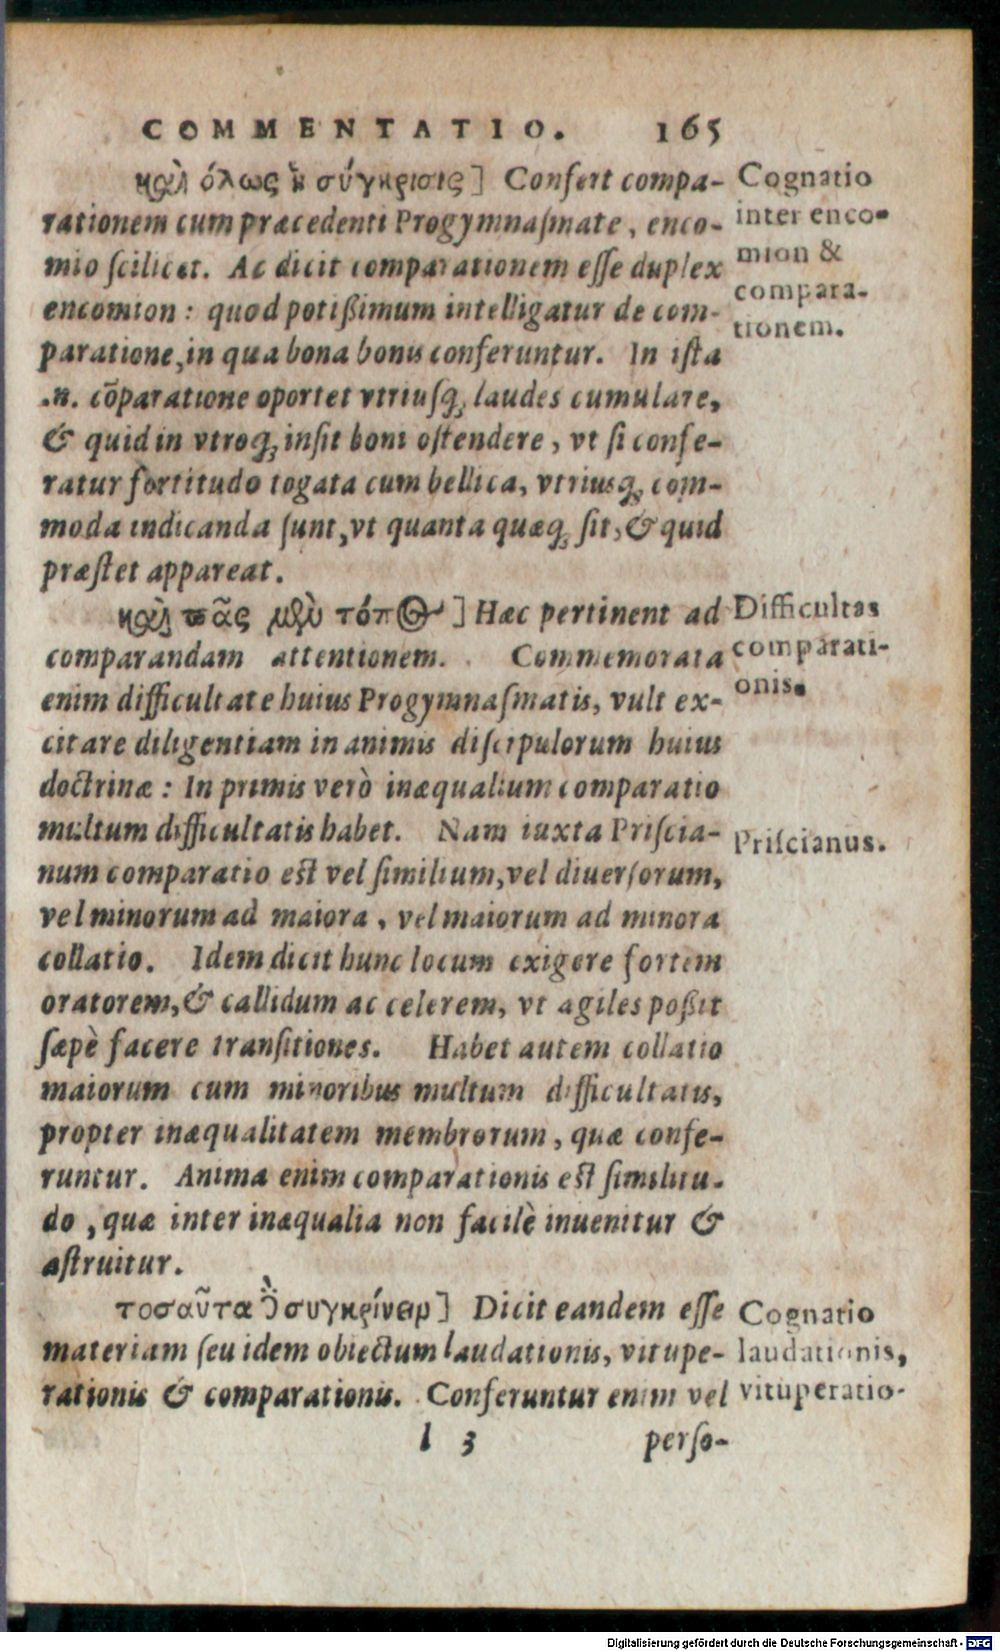 COMMENTATIO. 165
καὶ ὅλως ἡ σύγκρισις] Confert compa-
rationem cum præcedenti Progymnaſmate, enco-
mio ſcilicet. Ac dicit comparationem eſſe duplex
encomion: quod potißimum intelligatur de com-
paratione, in qua bona bonis conferuntur. In iſta
.n. cōparatione oportet vtriuſq; laudes cumulare,
& quid in vtroq; inſit boni oſtendere, vt ſi confe-
ratur fortitudo togata cum bellica, vtriusq; com-
moda indicanda ſunt, vt quanta quæq; ſit, & quid
præſtet appareat.
καὶ πᾶς μὲν τόπος] Hæc pertinent ad
comparandam attentionem. Commemorata
enim difficultate huius Progymnaſmatis, vult ex-
citare diligentiam in animis diſcipulorum huius
doctrinæ: In primis verò inæqualium comparatio
multum difficultatis habet. Nam iuxta Priſcia-
num comparatio est vel ſimilium, vel diuerſorum,
vel minorum ad maiora, vel maiorum ad minora
collatio. Idem dicit hunc locum exigere fortem
oratorem, & callidum ac celerem, vt agiles poßit
ſæpè facere tranſitiones. Habet autem collatio
maiorum cum minoribus multum difficultatis,
propter inæqualitatem membrorum, quæ confe-
runtur. Anima enim comparationis est ſimilitu-
do, quæ inter inæqualia non facilè inuenitur &
aſtruitur.
τοσαῦτα δὲ συγκρίνειν] Dicit eandem eſſe
materiam ſeu idem obiectum laudationis, vitupe-
rationis & comparationis. Conferuntur enim vel
l 3 perſo-
Cognatio
inter enco-
mion &
compara-
tionem.
Difficultas
comparati-
onis.
Priſcianus.
Cognatio
laudationis,
vituperatio-
Digitalisierung gefördert durch die Deutsche Forschungsgemeinschaft - DFG